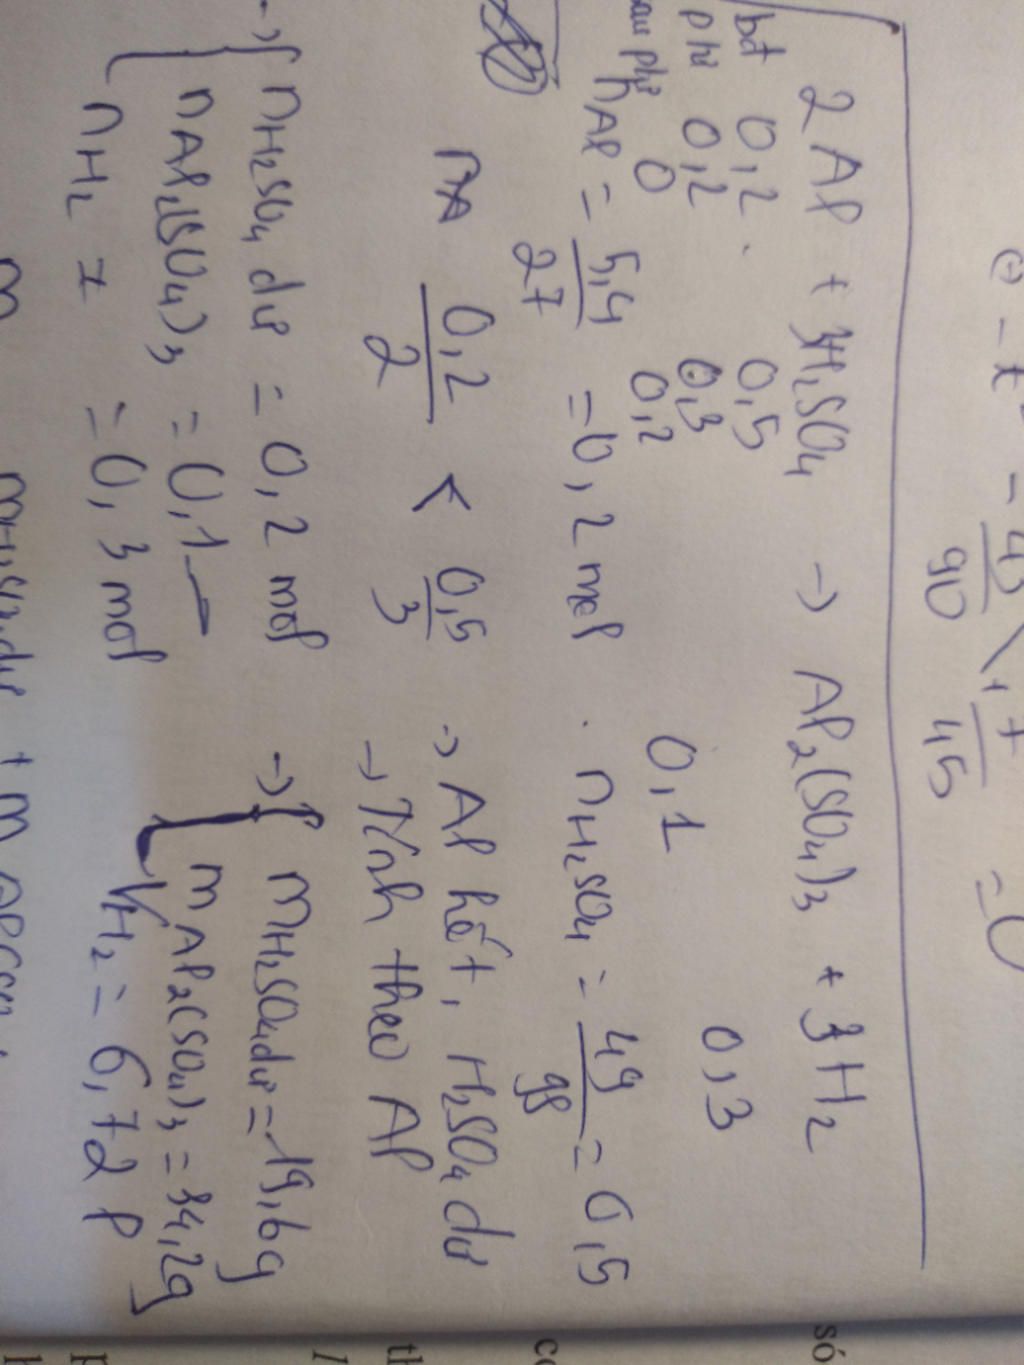 2Al + 3H₂SO₄ → Al₂(SO₄)₃ + 3H₂
bđ 0,2 0,5
phư 0,2 0,3 0,3
sau phư 0 0,2 0,1
nAl = 5,4/27 = 0,2 mol . nH₂SO₄ = 49/98 = 0,5
0,2/2 < 0,5/3 → Al hết, H₂SO₄ dư
→ Tính theo Al
→ { nH₂SO₄ dư = 0,2 mol → { mH₂SO₄ dư = 19,6g
nAl₂(SO₄)₃ = 0,1 mAl₂(SO₄)₃ = 34,2g
nH₂ = 0,3 mol VH₂ = 6,72 l